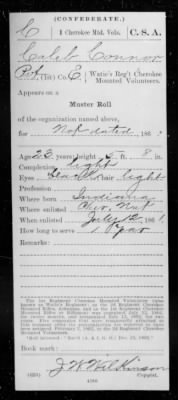 (CONFEDERATE.)
C 1 Cherokee Mtd. Vols. C. S. A.
Caleb Connor
Pvt, (1st) Co. E, Watie's Reg't Cherokee Mounted Volunteers.
Appears on a
Muster Roll
of the organization named above,
for Not dated, 186 .
Age 23 years; height 5 ft. 8 in.
Complexion light
Eyes black; hair light
Profession
Where born Indiana
Where enlisted Cher. Nat
When enlisted July 12, 1861.
How long to serve 1 Year
Remarks:
Book mark:
J. W. Wilkinson
Copyist.